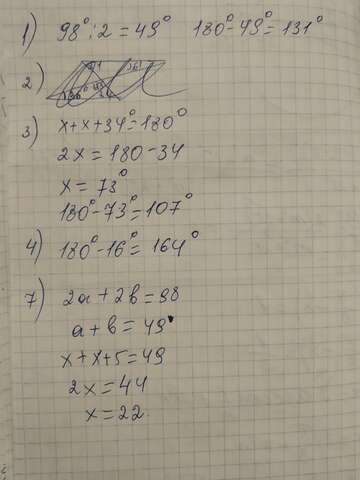 1) 98° : 2 = 49° 180° - 49° = 131°
2)
3) x + x + 34° = 180°
2x = 180 - 34
x = 73°
180° - 73° = 107°
4) 180° - 16° = 164°
7) 2a + 2b = 98
a + b = 49
x + x + 5 = 49
2x = 44
x = 22.